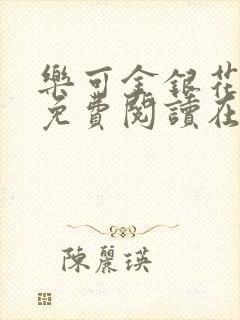 樂可金銀花
免費閱讀在
陳麗瑛